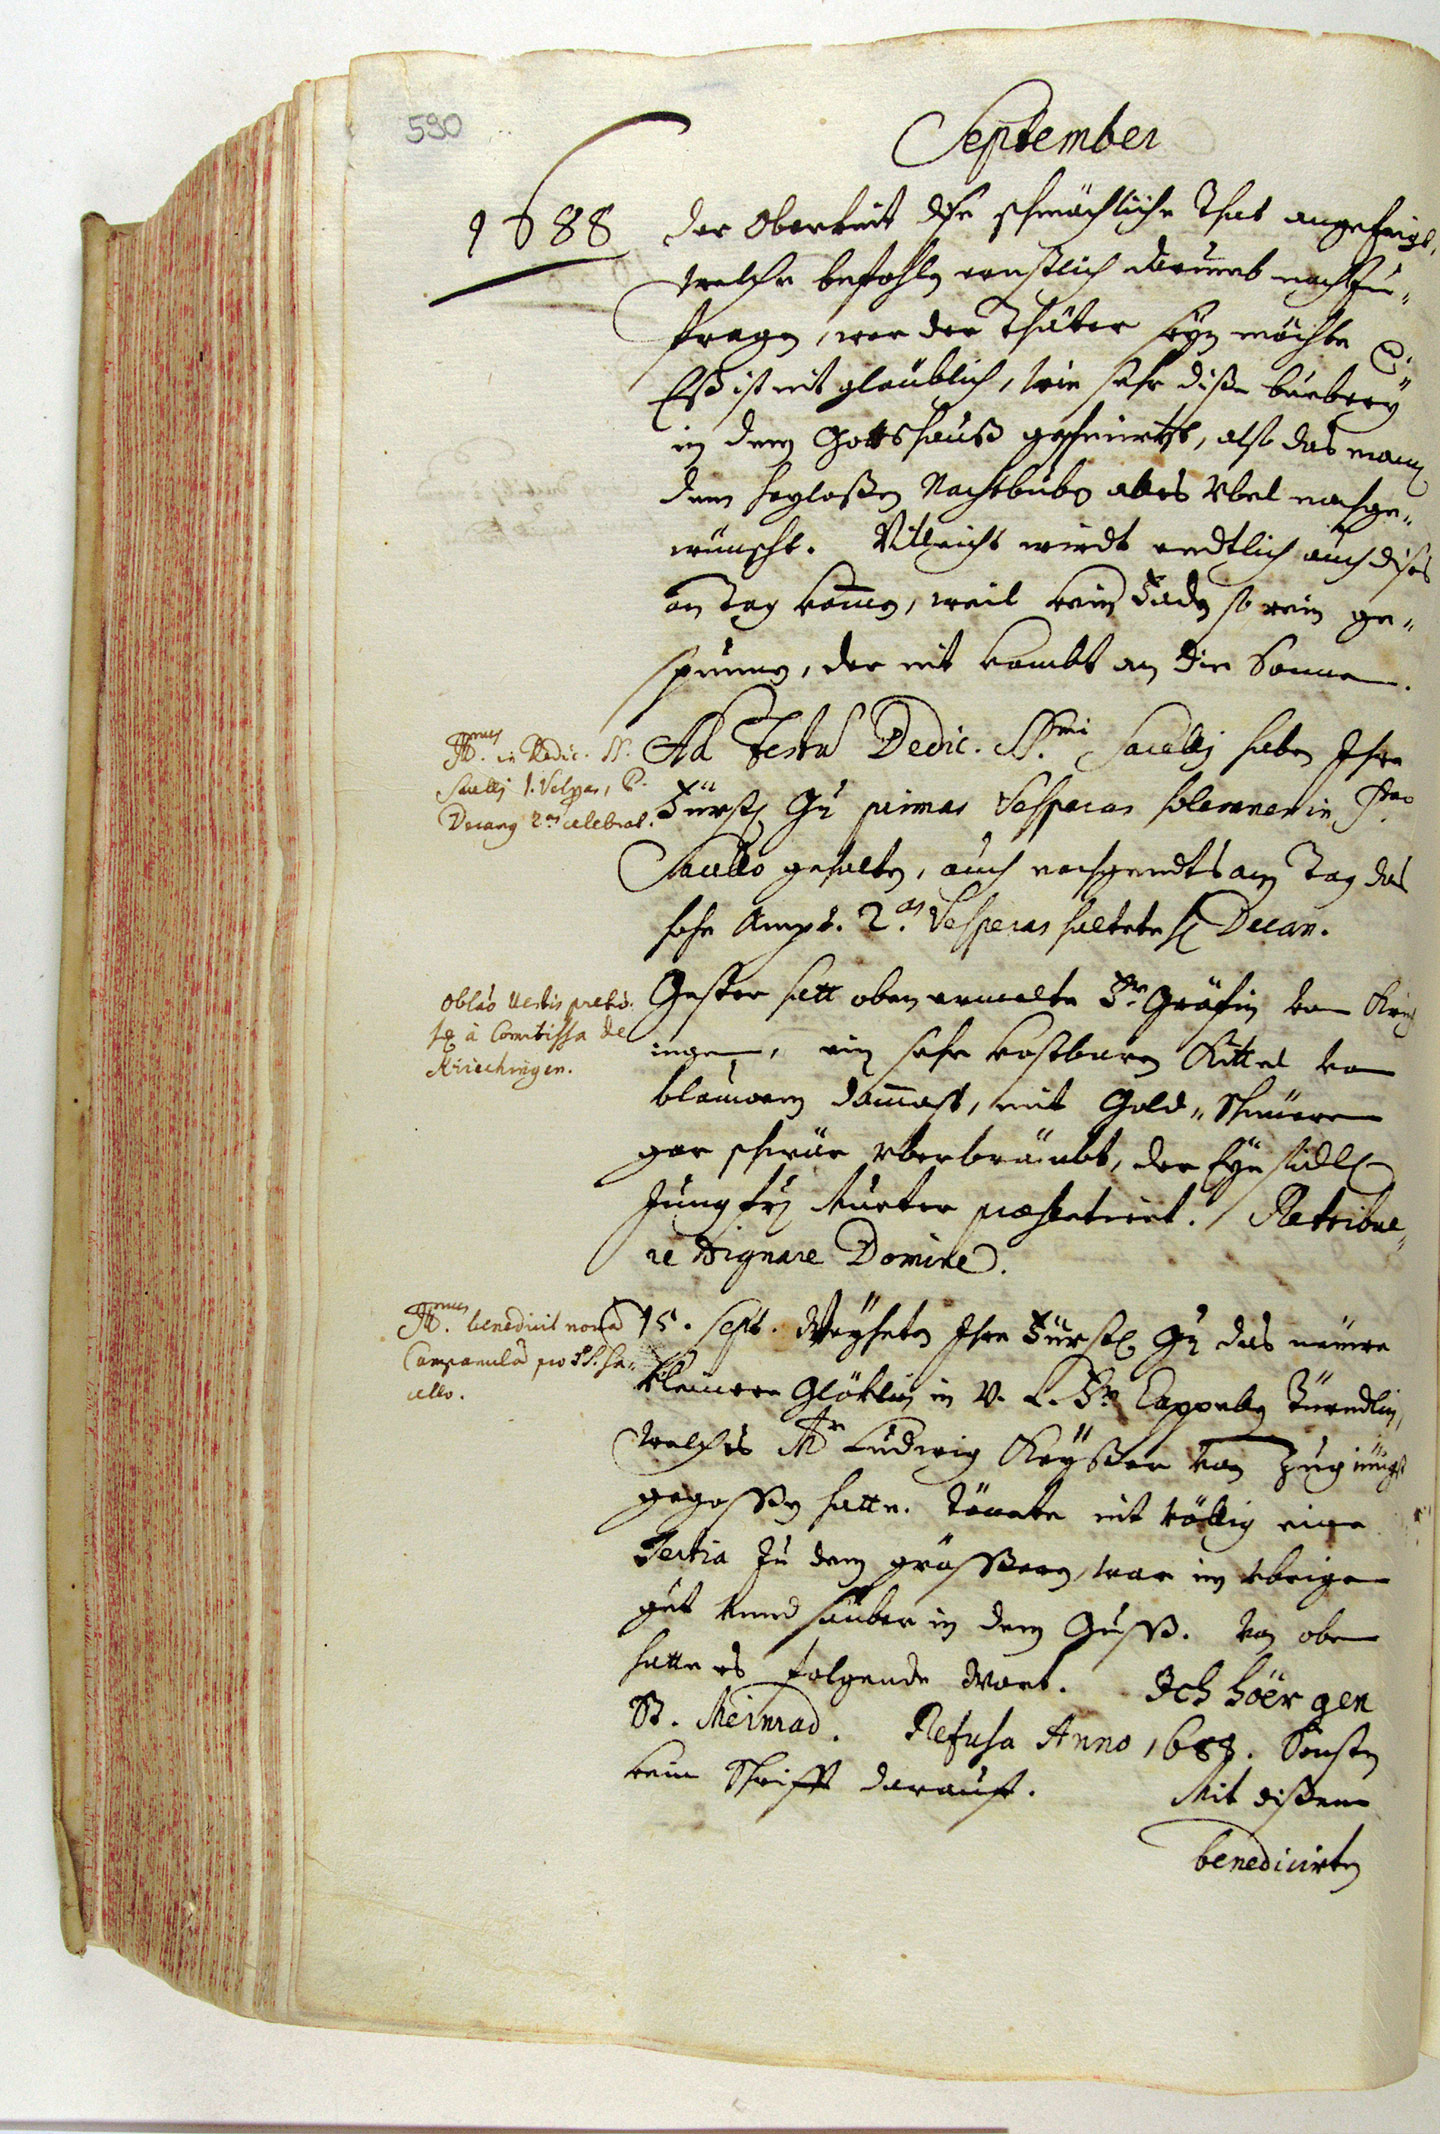 590
September
1688
der Oberkeit dise schmächliche That angezeigt,
welche befohlen ernstlich darumb nachzu-
fragen, wer der Thäter seyn möchte
Eß ist nit glaüblich, wie sehr diße bueberey
in dem Gottshauß geschmirtzt, also das mann
dem heylosen Nachtbuben alles Vbel nachge-
wünscht. Villeicht wirdt endtlich auch dises
an tag kommen, weil kein Faden so rein ge-
spunnen, der nit kombt an die Sonnen.
Rmus. in Dedic. SS.
Sacelli 1. Vesperas, P.
Decang 2.as celebrat.
Ad Festu Dedic. SS.mi Sacelli haben Ihre
Fürstl. Gn primas Vesperas solemner in Sto.
Sacello gehalten, auch nachgendts am Tag das
hohe Ampt. 2.as Vesperas haltete H Decan.
Oblao vestis pretio-
sę à Comitissa de
Kriechingen.
Gester hatt oben ermelte Fr. Gräfin von Kriech
ingen, ein sehr kostbaren Kittel von
blauwem dammast, mit Gold-Schnüeren
gar schwär vberbrämbt, der Eynsidl.
Jungfr. Mueter præsentiert. Retribue-
re dignare Domine.
Rmus. benedicit nova
Campanula pro SS. Sa-
cello.
15. Sept. Weyheten Ihre Fürstl. Gn das neuwe
kleinere Glöklin in V. L. Fr. Cappellen Türndlin,
welches Mr Ludwig Keyßer von Zug jüngst
gegossen hatte. Tönete nit völlig eine
Tertia zu dem grösseren, war im vbrigen
gut vnnd sauber in dem Guss. Von oben
hatte es folgende Wort. Ich höer gen
St. Meinrad. Refusa Anno 1688. Sonsten
kein Schrifft darauff. Mit dißem
benedicirten